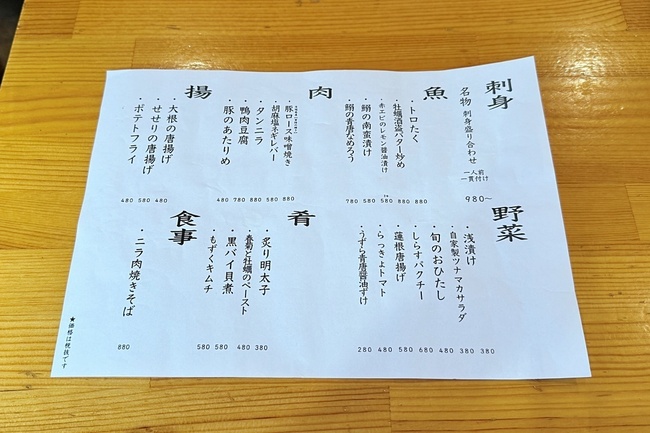 刺身
名物 刺身盛り合わせ
一人前
一貫付け
980~
魚
・トロたく
・牡蠣酒盗バター炒め
・赤エビのレモン醤油漬け
・鰯の南蛮漬け
・鰯の青唐なめろう
780 580 580 880 880
肉
・豚ロース味噌焼き
・胡麻塩ネギレバー
・タンニラ
・鴨肉豆腐
・豚のあたりめ
480 780 880 580 880
揚
・大根の唐揚げ
・せせりの唐揚げ
・ポテトフライ
480 580 480
野菜
・浅漬け
・自家製ツナマカサラダ
・旬のおひたし
・しらすパクチー
・蓮根唐揚げ
・らっきょトマト
・うずら青唐醤油ずけ
280 480 580 680 480 380 380
肴
・炙り明太子
・春菊と牡蠣のペースト
・黒バイ貝煮
・もずくキムチ
580 580 480 380
食事
・ニラ肉焼きそば
880
★価格は税抜です